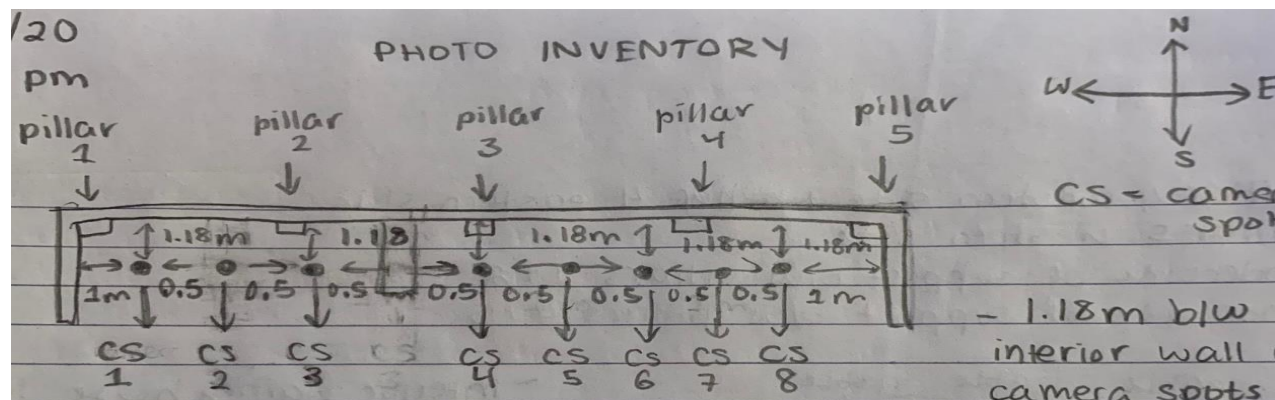 /20
pm
PHOTO INVENTORY
N
W E
S
pillar 1
pillar 2
pillar 3
pillar 4
pillar 5
CS = came
spot
1.18m 1.18 1.18m 1.18m 1.18m
1m 0.5 0.5 0.5 m 0.5 0.5 0.5 0.5 0.5 1m
CS CS CS CS CS CS CS CS CS
1 2 3 4 5 6 7 8
- 1.18m b/w
interior wall
camera spots